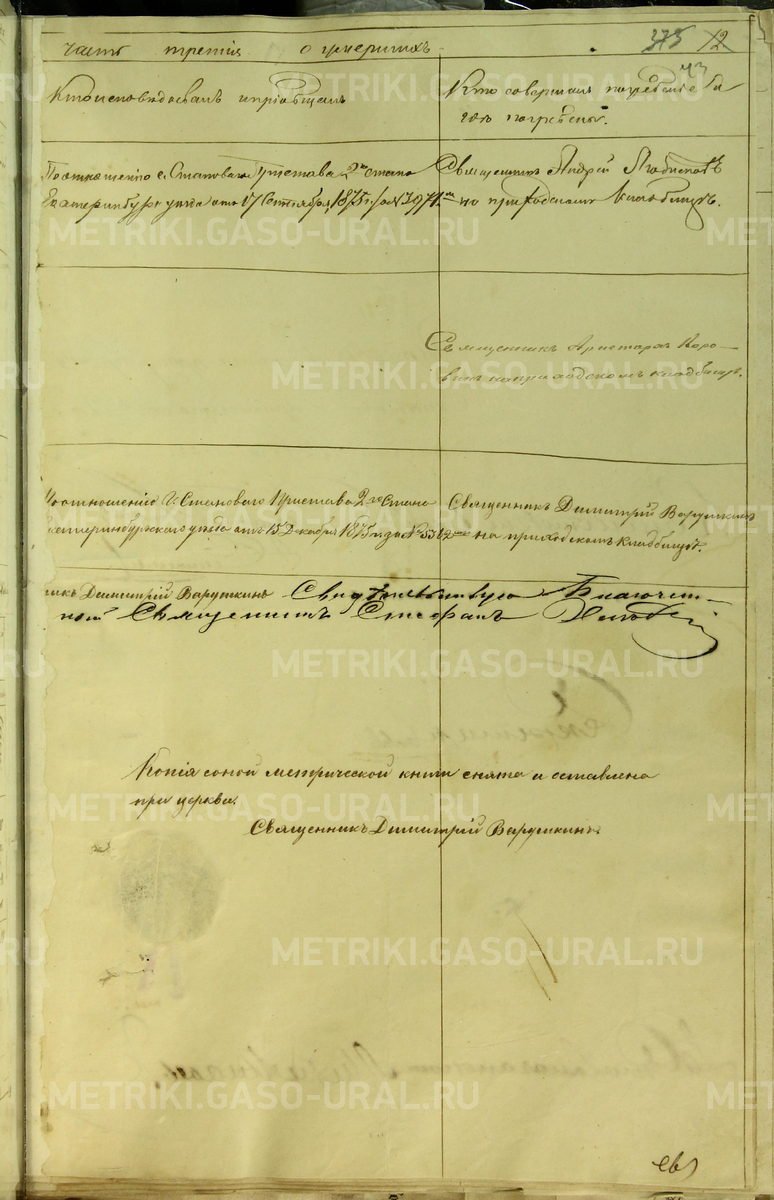 часть третія о умершихъ. 375 12
43
Кто исповѣдывалъ и пріобщалъ
Кто совершалъ погребеніе и
гдѣ погребены.
По отношенію г. Становаго Пристава 2го стана
Екатеринбург уѣзда отъ 17 Сентября 1875 г. за №3971мъ
Священникъ Андрей
на приходскомъ кладбищѣ.
Священникъ Аристархъ Коро–
винъ на приходскомъ кладбищѣ.
По отношенію Г. Становаго Пристава 2го Стана
Екатеринбургскаго уѣзда отъ 15 Декабря 1875 г. за №
Священникъ Димитрій Варушкинъ
на приходскомъ кладбищѣ.
Димитрій Варушкинъ Свидѣтельствую Благочин–
ный Священникъ Стефанъ
Копія съ оной метрической книги снята и оставлена
при церкви.
Священникъ Димитрій Варушкинъ
METRIKI.GASO-URAL.RU